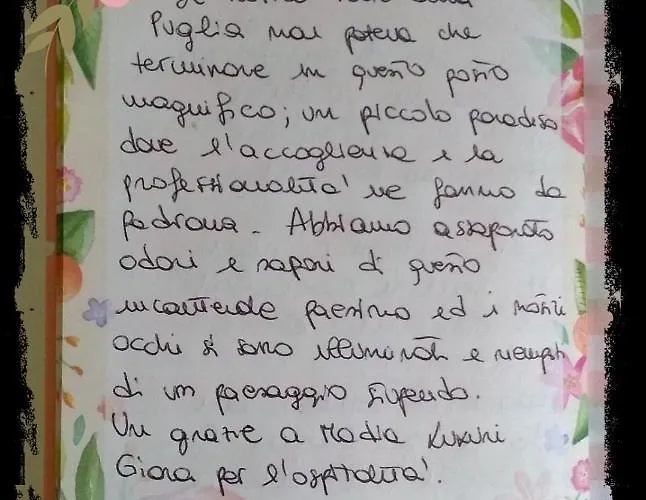 Puglia non poteva che
terminare in questo posto
magnifico; un piccolo paradiso
dove l'accoglienza e la
professionalità ne fanno da
padrona. Abbiamo assaporato
odori e sapori di questo
incantevole paesino ed i nostri
occhi si sono illuminati e riempiti
di un paesaggio stupendo.
Un grazie a Nadia
Gioia per l'ospitalità.